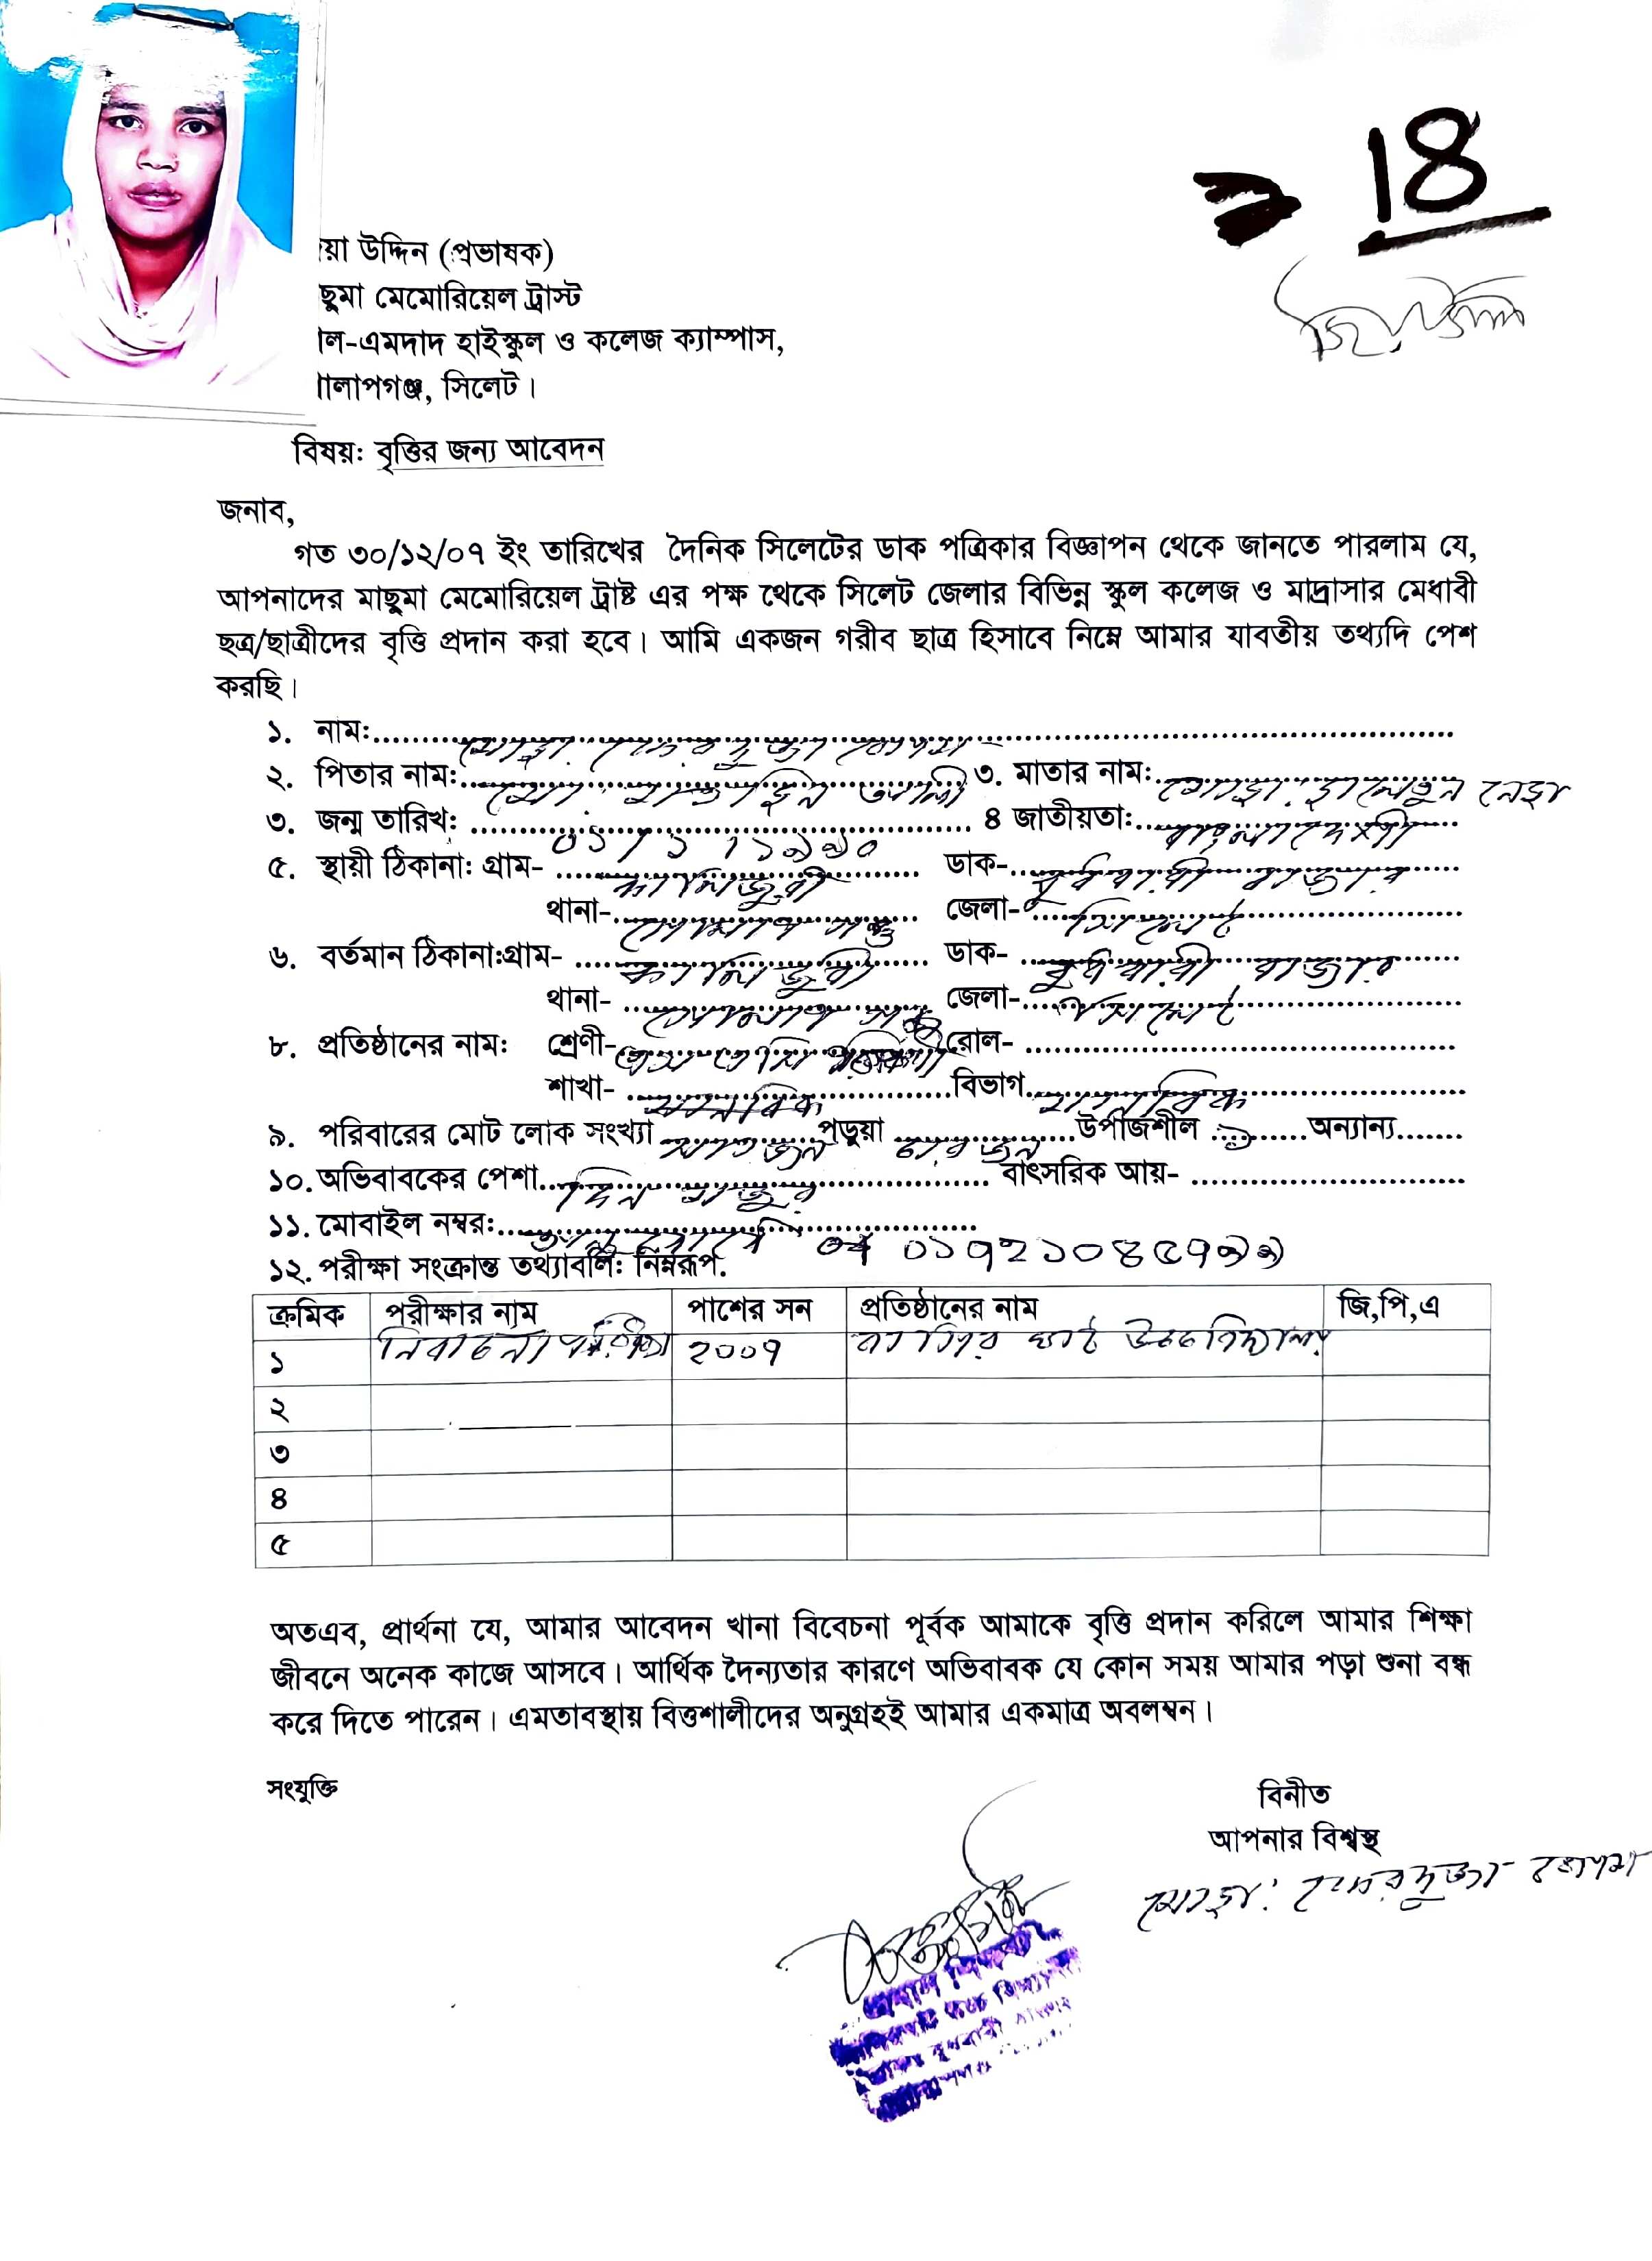 18
য়া উদ্দিন (প্রভাষক)
ছুমা মেমোরিয়েল ট্রাস্ট
ল-এমদাদ হাইস্কুল ও কলেজ ক্যাম্পাস,
লাপগঞ্জ, সিলেট।
বিষয়: বৃত্তির জন্য আবেদন
জনাব,
গত ৩০/১২/০৭ ইং তারিখের দৈনিক সিলেটের ডাক পত্রিকার বিজ্ঞাপন থেকে জানতে পারলাম যে,
আপনাদের মাছুমা মেমোরিয়েল ট্রাষ্ট এর পক্ষ থেকে সিলেট জেলার বিভিন্ন স্কুল কলেজ ও মাদ্রাসার মেধাবী
ছত্র/ছাত্রীদের বৃত্তি প্রদান করা হবে। আমি একজন গরীব ছাত্র হিসাবে নিম্নে আমার যাবতীয় তথ্যদি পেশ
করছি।
১. নাম: মোছা:
২. পিতার নাম: মো: আলী ৩. মাতার নাম: মোছা:
৩. জন্ম তারিখ: ০১/১/১৯৯০ ৪ জাতীয়তা: বাংলাদেশী
৫. স্থায়ী ঠিকানা: গ্রাম- কালিজুরী ডাক- বুধবারী বাজার
থানা- গোলাপগঞ্জ জেলা- সিলেট
৬. বর্তমান ঠিকানা:গ্রাম- কালিজুরী ডাক- বুধবারী বাজার
থানা- গোলাপগঞ্জ জেলা- সিলেট
৮. প্রতিষ্ঠানের নাম: শ্রেণী- এস এস সি রোল-
শাখা- মানবিক বিভাগ মানবিক
৯. পরিবারের মোট লোক সংখ্যা সাতজন পড়ুয়া চারজন উর্পাজশীল ১ অন্যান্য
১০. অভিবাবকের পেশা দিন মজুর বাৎসরিক আয়-
১১. মোবাইল নম্বর: অনুরোধে ০১৭২১০৪৫৭৯৯
১২. পরীক্ষা সংক্রান্ত তথ্যাবলি: নিম্নরূপ.
ক্রমিক পরীক্ষার নাম পাশের সন প্রতিষ্ঠানের নাম জি,পি,এ
১ নির্বাচনী পরীক্ষা ২০০৭ উচ্চ বিদ্যালয়
২
৩
৪
৫
অতএব, প্রার্থনা যে, আমার আবেদন খানা বিবেচনা পূর্বক আমাকে বৃত্তি প্রদান করিলে আমার শিক্ষা
জীবনে অনেক কাজে আসবে। আর্থিক দৈন্যতার কারণে অভিবাবক যে কোন সময় আমার পড়া শুনা বন্ধ
করে দিতে পারেন। এমতাবস্থায় বিত্তশালীদের অনুগ্রহই আমার একমাত্র অবলম্বন।
সংযুক্তি
বিনীত
আপনার বিশ্বস্থ
মোছা:
প্রধান শিক্ষক